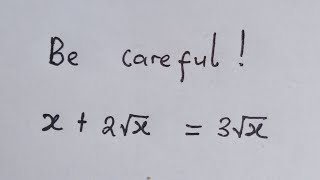 Be careful!
x + 2√x = 3√x